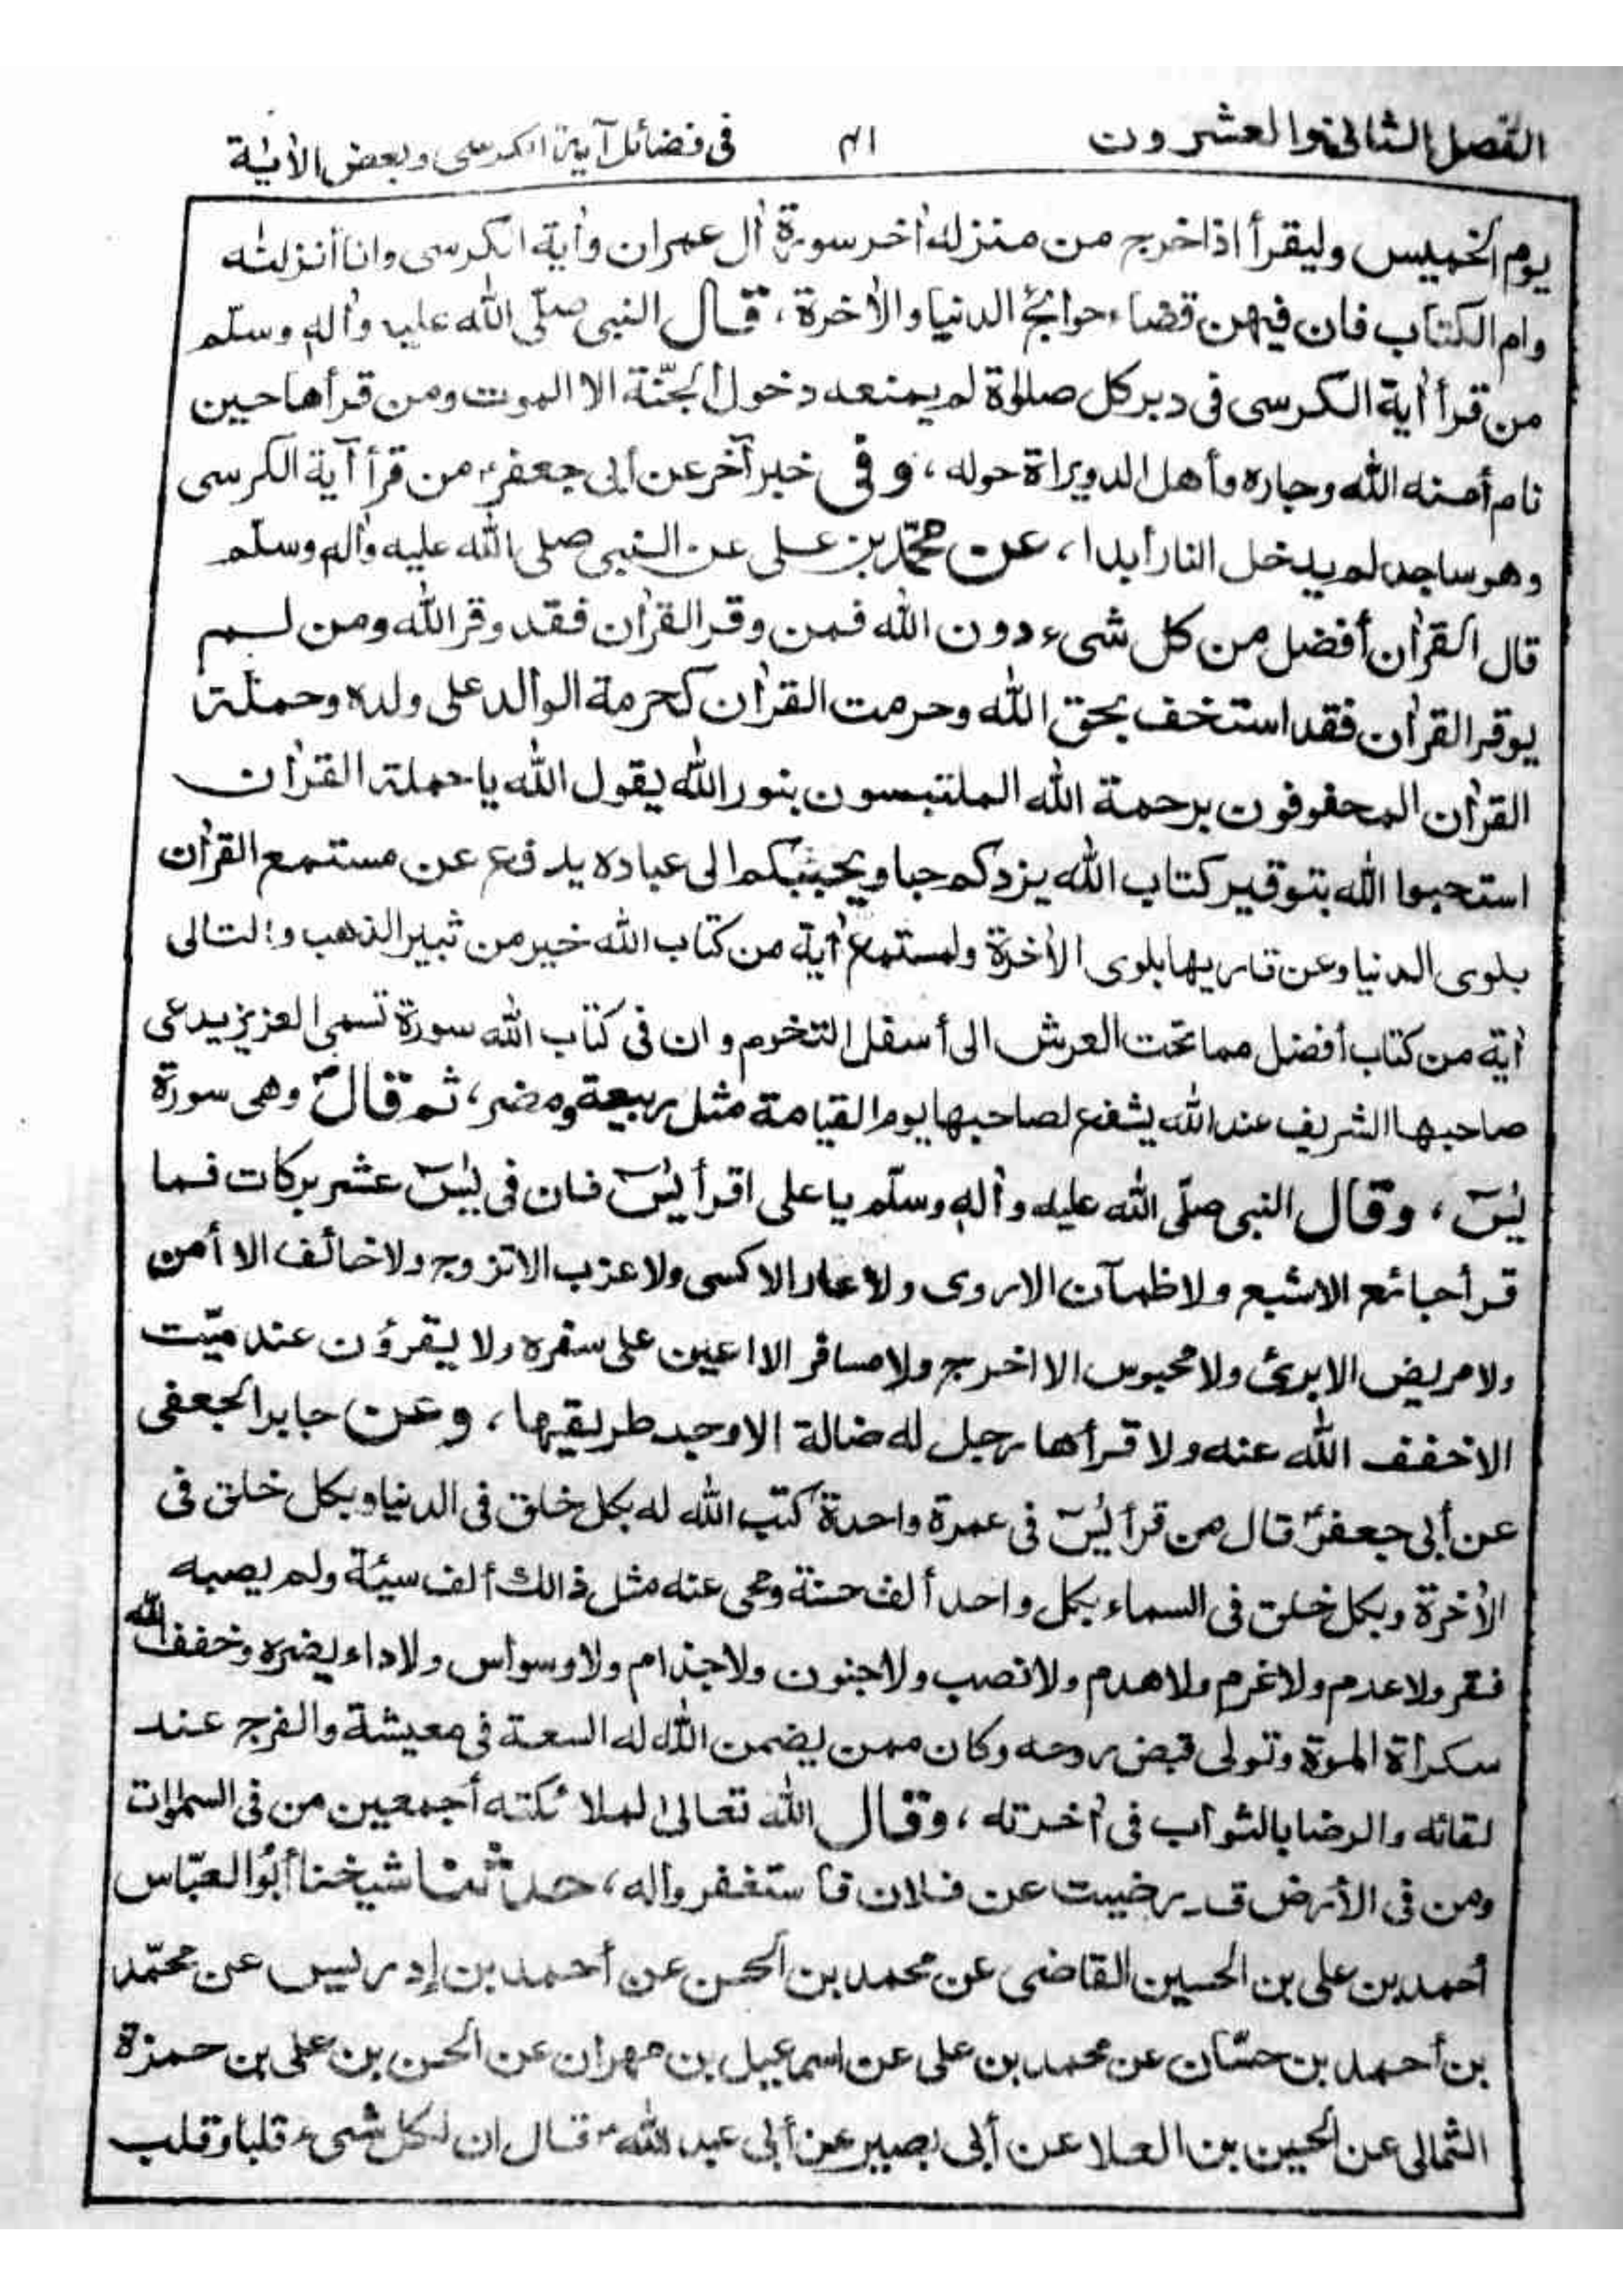 الفصل الثانى والعشرون ٤١ فى فضائل آية الكرسى وبعض الأية
يوم الخميس وليقرأ اذا خرج من منزله أخر سورة أل عمران وأية الكرسى وانا أنزلنه
وام الكتاب فان فيهن قضاء حوائج الدنيا والأخرة ، قال النبى صلّى الله عليه وأله وسلّم
من قرأ أية الكرسى فى دبر كل صلوٰة لم يمنعه دخول الجنّة الا الموت ومن قرأها حين
نام أمنه الله وجاره وأهل الدويراة حوله ، و فى خبر آخر عن أبى جعفرؑ من قرأ آية الكرسى
وهو ساجد لم يدخل النار أبدا ، عن محمّد بن على عن النبى صلى الله عليه وأله وسلّم
قال القرأن أفضل من كل شىء دون الله فمن وقر القرأن فقد وقر الله ومن لم
يوقر القرأن فقد استخف بحق الله وحرمت القرأن كحرمة الوالد على ولده وحملة
القرأن المحفوفون برحمة الله الملتبسون بنور الله يقول الله يا حملة القرأن
استحبوا الله بتوقير كتاب الله يزدكم حبا ويحببكم الى عباده يدفع عن مستمع القرأن
بلوى الدنيا وعن قاريها بلوى الأخرة ولمستمع أية من كتاب الله خير من ثبير الذهب و لتالى
أية من كتاب أفضل مما تحت العرش الى أسفل التخوم و ان فى كتاب الله سورة تسمى العزيز يدعى
صاحبها الشريف عند الله يشفع لصاحبها يوم القيامة مثل ربيعة ومضر ، ثم قالؐ وهى سورة
يٰسٓ ، وقال النبى صلّى الله عليه وأله وسلّم يا على اقرأ يٰسٓ فان فى يٰسٓ عشر بركات فما
قرأ جائع الا شبع ولا ظمآن الا روى ولا عار الا كسى ولا عزب الا تزوج ولا خائف الا أمن
ولا مريض الا برئ ولا محبوس الا اخرج ولا مسافر الا اعين على سفره ولا يقرؤن عند ميّت
الا خفف الله عنه ولا قرأها رجل له ضالة الا وجد طريقها ، وعن جابر الجعفى
عن أبى جعفرؑ قال من قرأ يٰسٓ فى عمرة واحدة كتب الله له بكل خلق فى الدنيا وبكل خلق فى
الأخرة وبكل خلق فى السماء بكل واحد ألف حسنة ومحى عنه مثل ذالك ألف سيئة ولم يصبه
فقر ولا عدم ولا غرم ولا هدم ولا نصب ولا جنون ولا جذام ولا وسواس ولا داء يضره وخفف الله
سكرأة الموة وتولى قبض روحه وكان ممن يضمن الله له السعة فى معيشة والفرج عند
لقائه والرضا بالثوأب فى أخرته ، وقال الله تعالىٰ لملا ئكته أجمعين من فى السمٰوات
ومن فى الأرض قد رضيت عن فلان فا ستغفر واله ، حدثنا شيخنا أبو العبّاس
أحمد بن على بن الحسين القاضى عن محمد بن الحسن عن أحمد بن إدريس عن محمّد
بن أحمد بن حسّان عن محمد بن على عن اسمٰعيل بن مهران عن الحسن بن على بن حمزة
الثمالى عن الحسين بن العلا عن أبى بصير عن أبى عبد اللهؑ قال ان لكل شىء قلبا وقلب